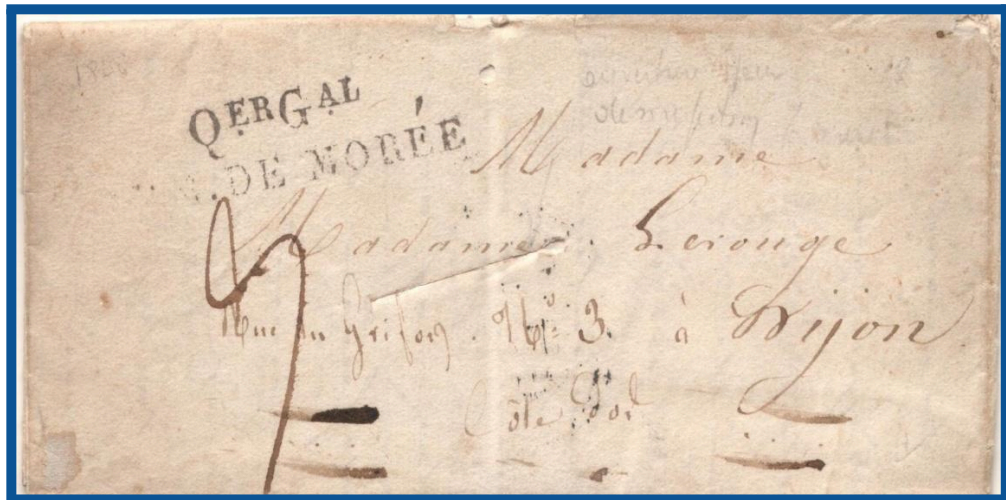 1828
QERGAL
DE MORÉE
Madame
Madame Lerouge
Rue du Griffon. No. 3. à Dijon
Côte d'or